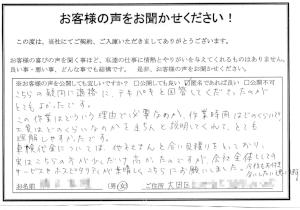 お客様の声をお聞かせください！
この度は、当社にてご契約、ご入庫いただきましてありがとうございます。
お客様の喜びの声を聞く事ほど、私達の仕事に情熱とやりがいを与えてくれるものはありません。
良い事・悪い事、どんな事でも結構です。是非、お客様の声をお聞かせください。
※お客様の声を公開しても宜しいですか？ □公開しても良い ☑匿名であれば良い □公開不可
こちらの疑問に適格に、テキパキと回答してくださったのが
とてもよかったです。
この作業はどういう理由で必要なのか、作業時間はどのくらいか？
工賃はどのくらいなのかをきちんと説明してくれて、とても
理解しやすかったです。
車検代金については、他社さんと合い見積りをしており、
実はこちらの方が少しだけ高かったのですが、会社全体としての
サービスやホスピタリティが素晴らしく、こちらにお願いしました。
お名前 (男・女) ご住所 大田区